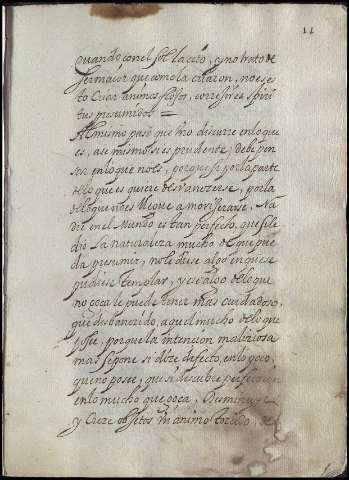 11
quando con el sol la crio, y no trato de
ser maior que como la criaron, no es es
to criar animos flojos, corregir espiri
tus presumidos =
Al mismo paso que uno discurre en lo que
es, asi mismo si es prudente, debe pen
sar en lo que no es, porque si por la parte
de lo que es quiere desvanezerse, por la
de lo que no es llegue a mortificarse, Na
die en el Mundo es tan perfecto, que si le
dio la naturaleza mucho de que pue
da presumir, no le diese algo en que se
pudiese templar, y ese algo de lo que
no goza le puede tener mas cuidadoso,
que desbanezido, aquel mucho de lo que
posee, porque la intencion maliziosa
mas se pone si dize defecto, en lo poco
que no posee, que si descubre perfeccion
en lo mucho que goza, Disminuye
y Creze objetos un animo torzido,